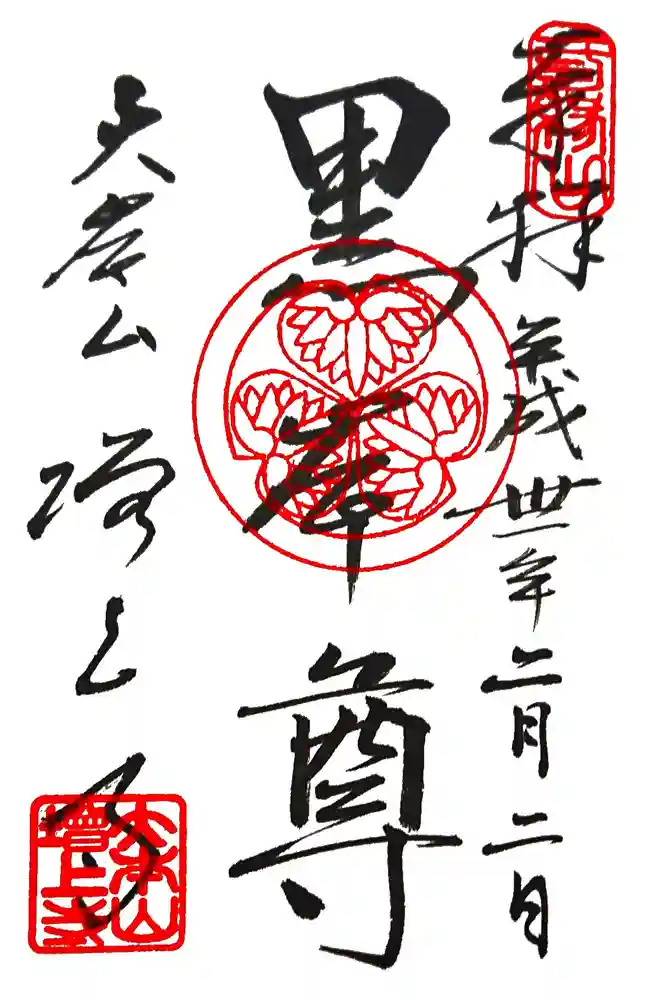 奉拝 平成卅一年二月二日
黒本尊
大本山 増上寺
三縁山
大本山
増上寺